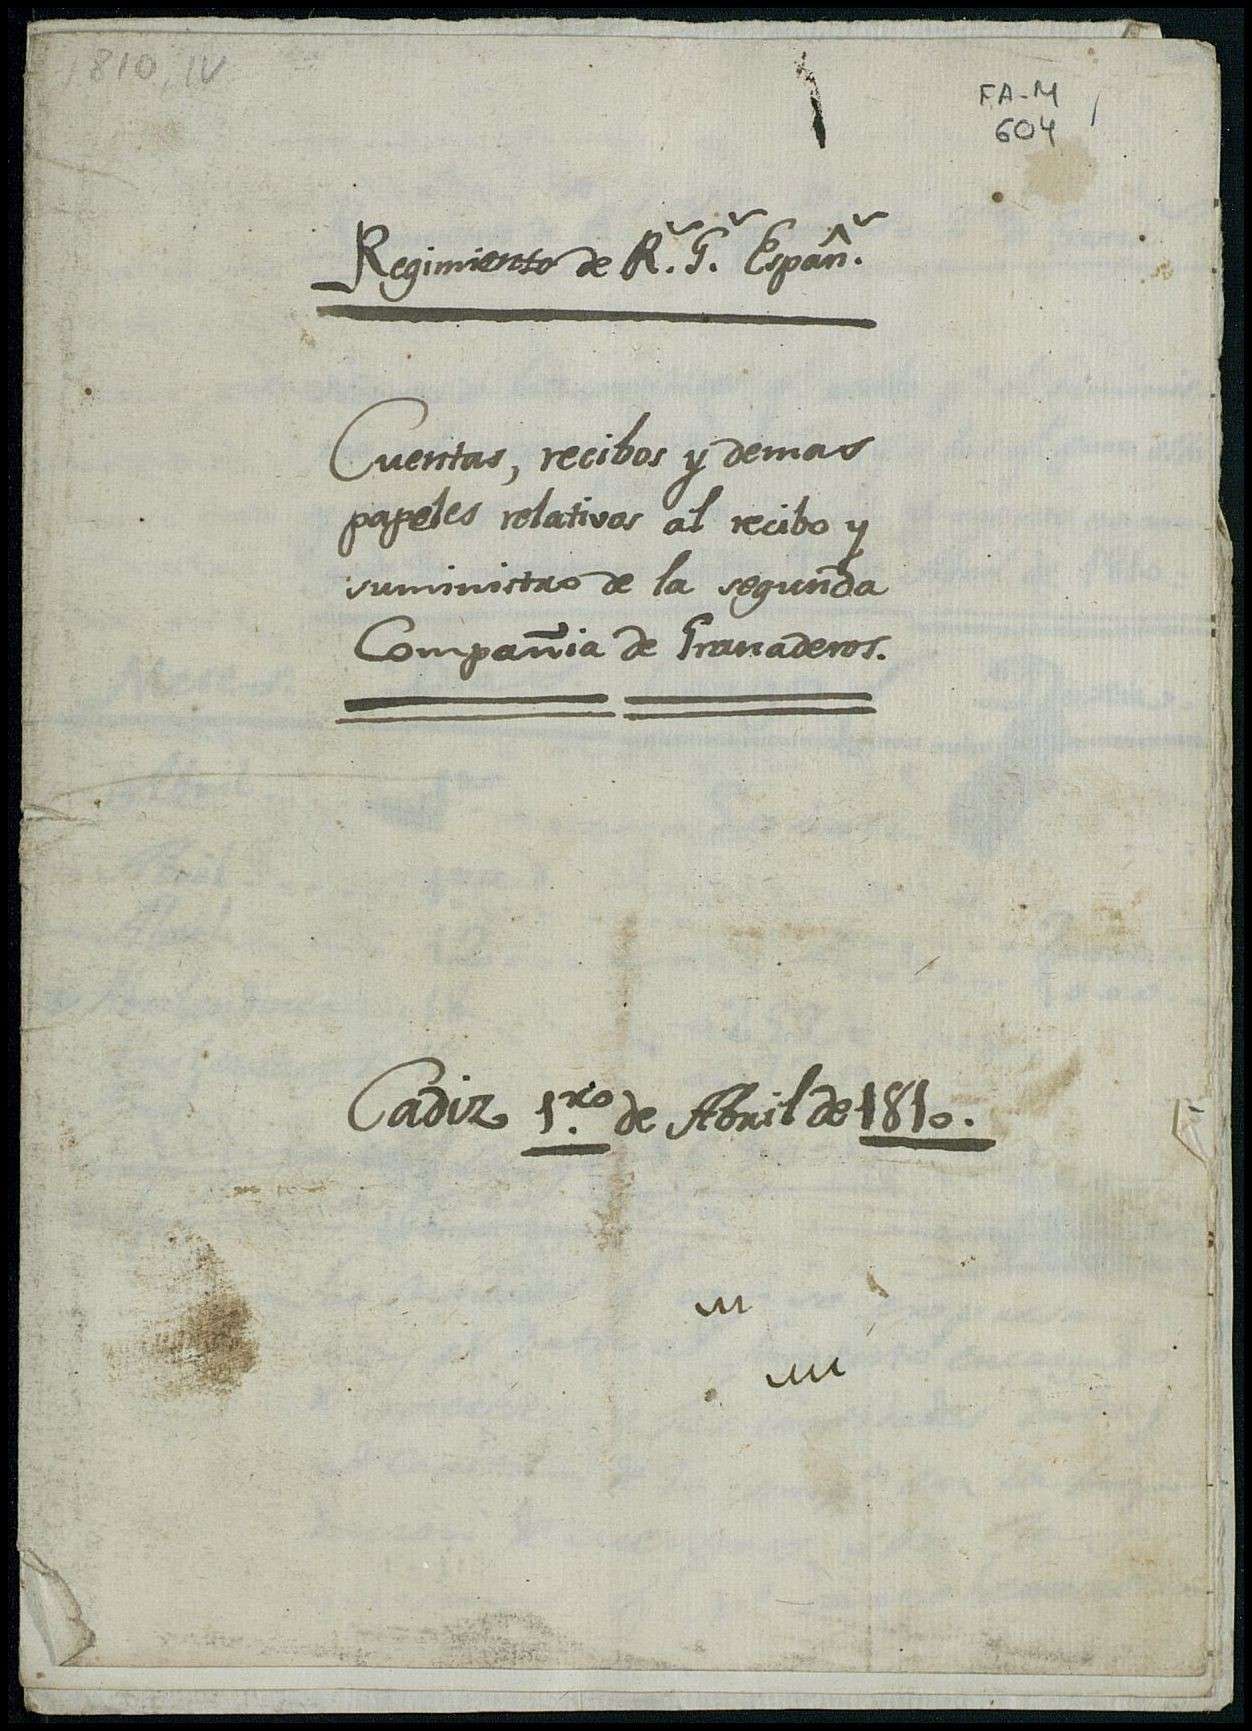 1810, IV
FA-M
604
Regimiento de R.ˢ G.ˢ Españ.ˢ
Cuentas, recibos y demas
papeles relativos al recibo y
suministro de la segunda
Compañia de Granaderos.
Cadiz 1.ʳᵒ de Abril de 1810.